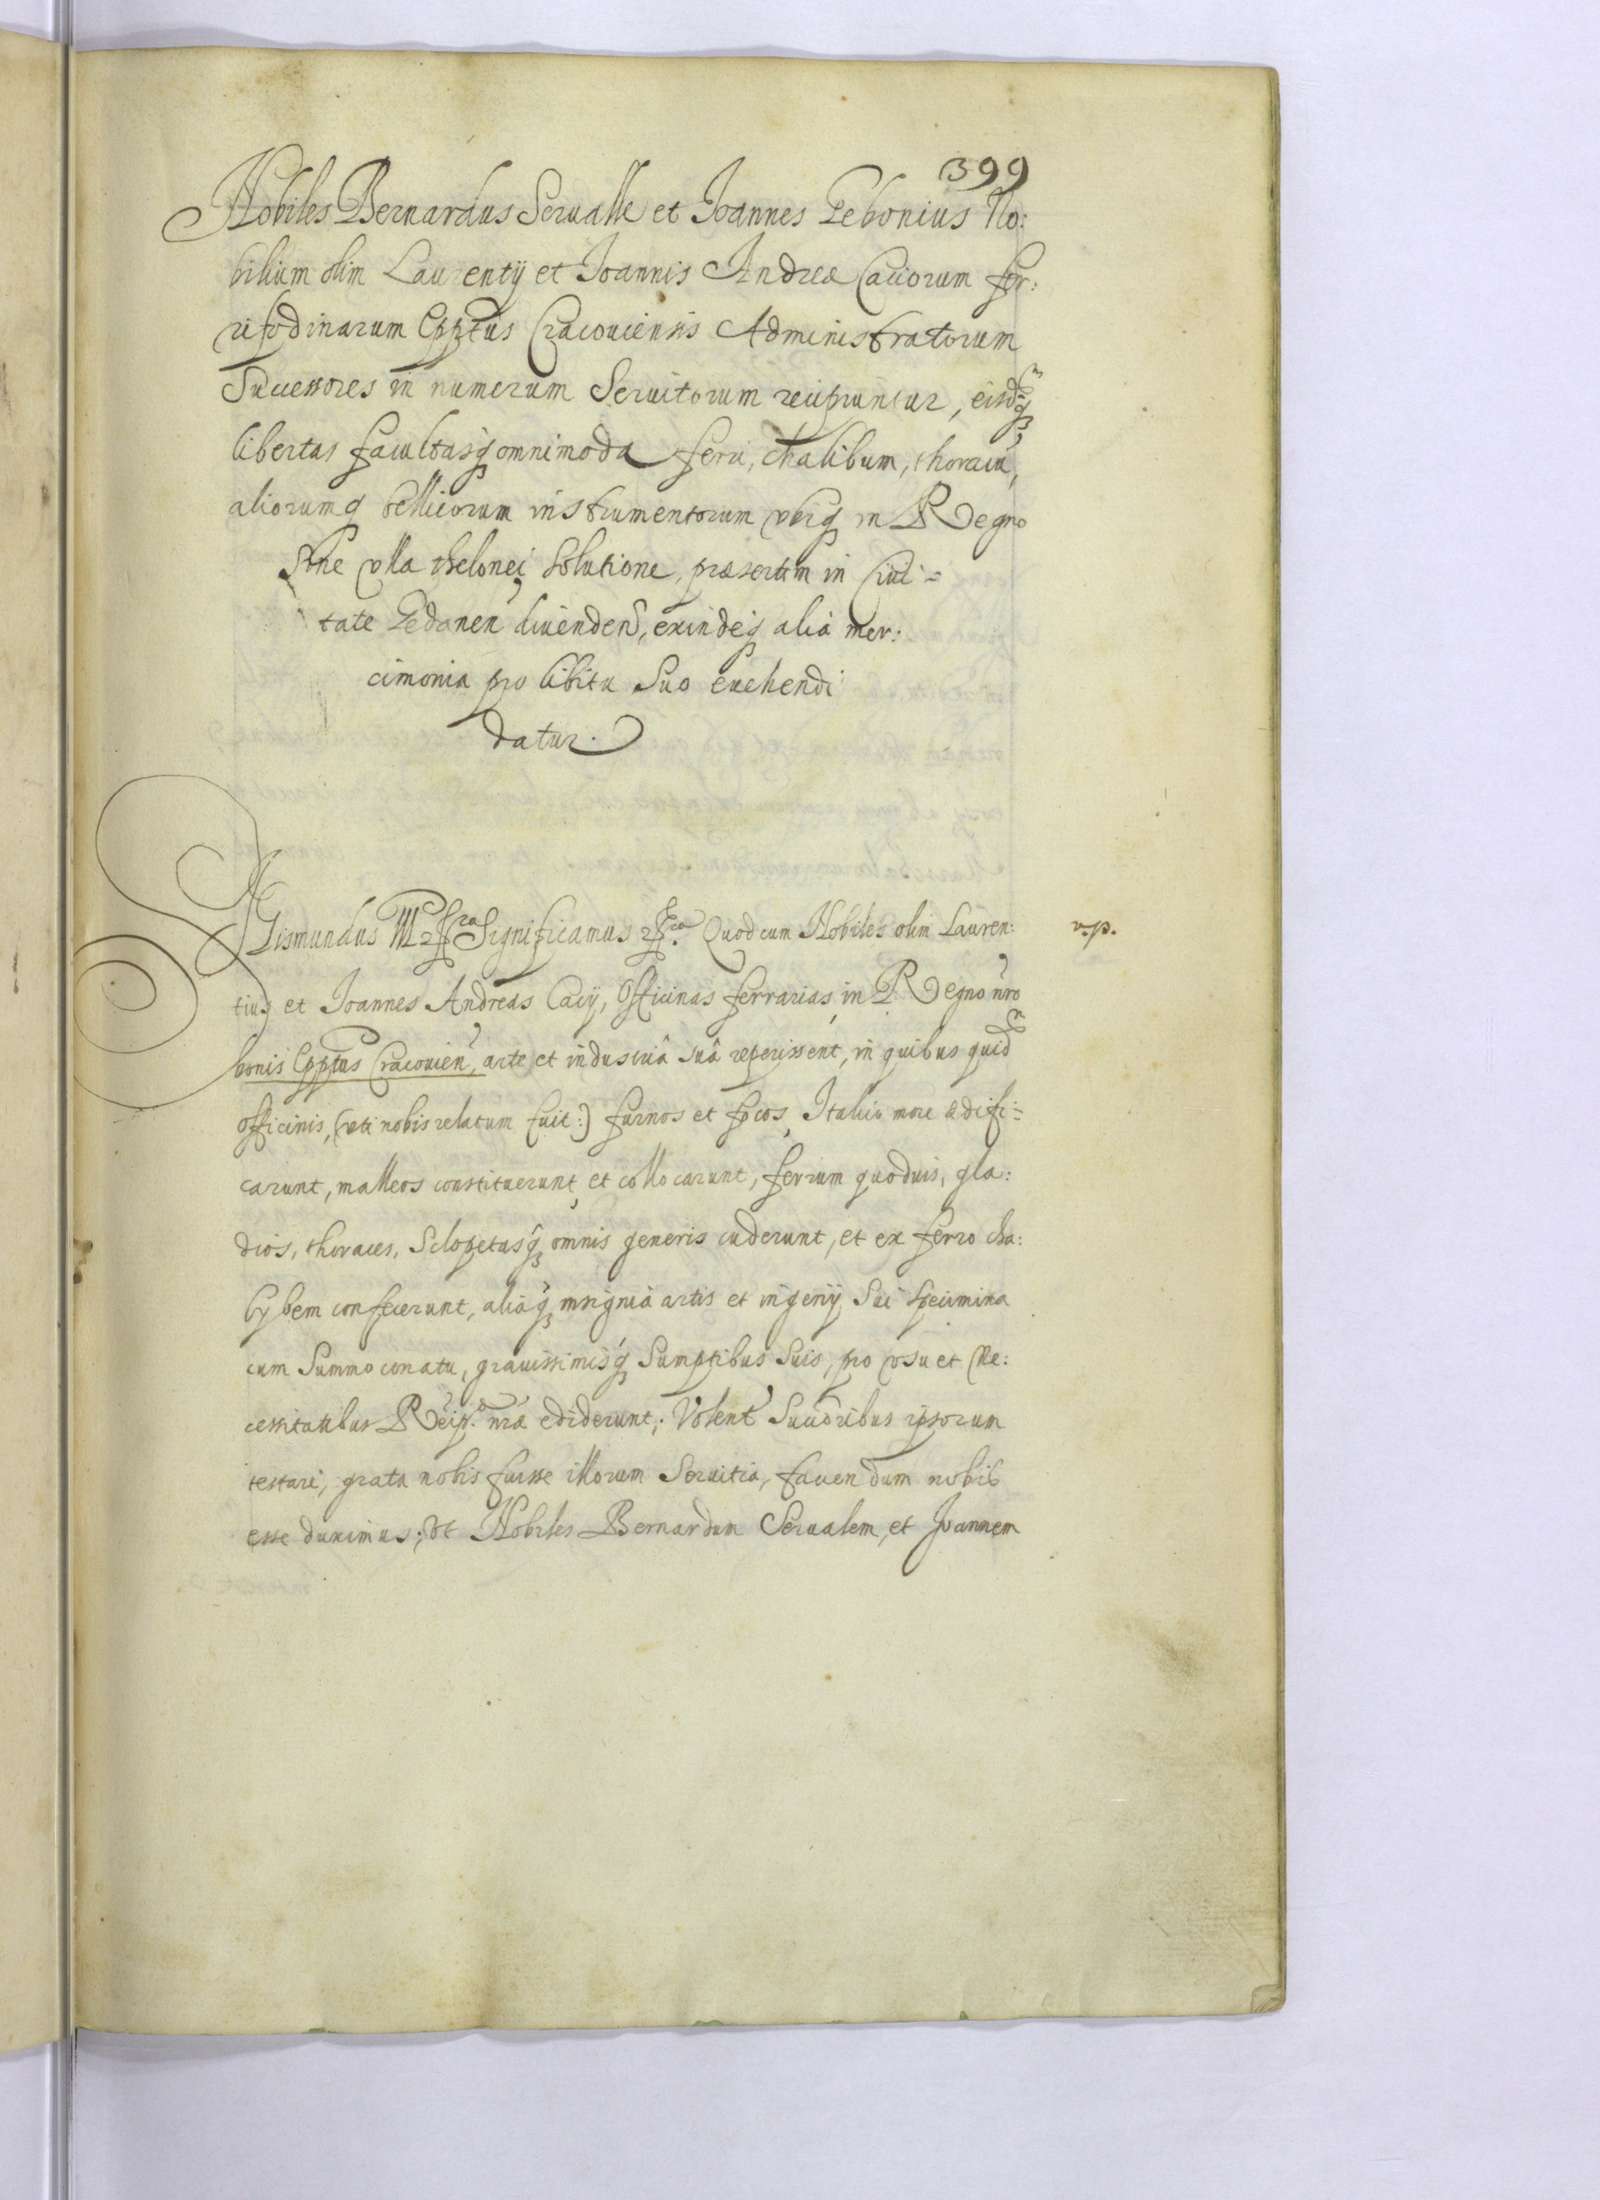 399
Nobiles Bernardus Serualle et Joannes Gebonius No:
bilium olim Laurentij et Joannis Andreæ Cacciorum fer:
rifodinarum Epptus Cracouiensis Administratorum
Successores in numerum Seruitorum recipiuntur, eisdemq
libertas facultasq omnimoda ferri, chalibum, thoracu,
aliorumq bellicorum instrumentorum vbiq in Regno
sine vlla thelonei solutione, præsertim in Ciui=
tate Gedanen diuenden, exindeq alia mer:
cimonia pro libitu suo euehendi
datur.
Sigismundus III etc Significamus etc. Quod cum Nobiles olim Lauren:
v.p.
tius et Joannes Andreas Cacij, Officinas ferrarias in Regno nro
bonis Epptus Cracouien, arte et industriâ suâ reperissent, in quibus quidm
officinis, (vti nobis relatum fuit:) furnos et focos, Italico more ædifi=
carunt, malleos constituerunt et collocarunt, ferrum quoduis, gla:
dios, thoraces, Sclopetasq omnis generis cuderunt, et ex ferro cha:
lybem confecerunt, aliaq insignia artis et ingenij Sui specimina
cum Summo conatu, grauissimisq Sumptibus Suis, pro vsu et Ne:
cessitatibus Reip. nræ ediderunt; Volent Succoribus ipsorum
testari, grata nobis fuisse illorum Seruitia, fauendum nobis
esse duximus; vt Nobiles Bernardum Serualem, et Joannem